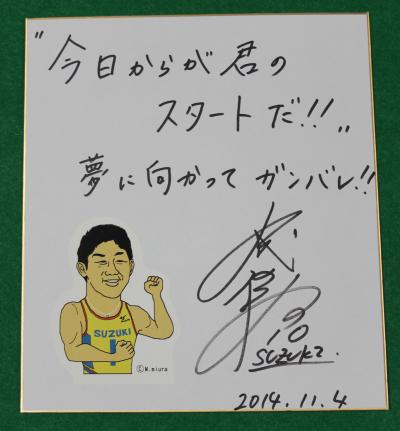 "今日からが君の
スタートだ!!"
夢に向かってガンバレ!!
SUZUKI
©M.miura
SUZUKI.
2014.11.4